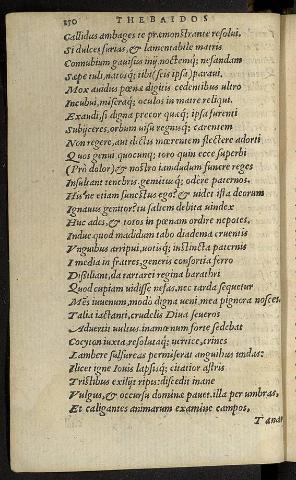 250 THEBAIDOS
Callidus ambages te præmonstrante resolui.
Si dulces furias, & lamentabile matris
Connubium gauisus inij, noctemq; nefandam
Sæpe tuli, natosq; tibi (scis ipsa) paraui.
Mox auidus pœnæ digitis cedentibus ultro
Incubui, miseraq; oculos in matre reliqui.
Exaudi, si digna precor quæq; ipsa furenti
Subijceres, orbum uisu regnisq; carentem
Non regere, aut dictis mœrentem flectere adorti
Quos genui quocunq; toro quin ecce superbi
(Prò dolor) & nostro iamdudum funere reges
Insultant tenebris, gemitusq; odere paternos.
His'ne etiam funestus ego? & uidet ista deorum
Ignauus genitor? tu saltem debita uindex
Huc ades, & totos in pœnam ordire nepotes,
Indue quod madidum tabo diadema cruentis
Vnguibus arripui, uotisq; instincta paternis
I media in fratres, generis consortia ferro
Dissiliant, da tartarei regina barathri
Quod cupiam uidisse nefas, nec tarda sequetur
Mens iuuenum, modo digna ueni mea pignora nosces.
Talia iactanti, crudelis Diua seueros
Aduertit uultus, inamœnum forte sedebat
Cocyton iuxta, resolutaq; uertice, crines
Lambere sulfureas permiserat anguibus undas:
Ilicet igne Iouis lapsisq; citatior astris
Tristibus exilijt ripis: discedit inane
Vulgus, & occursus dominæ pauet. illa per umbras,
Et caligantes animarum examine campos,
Tænar